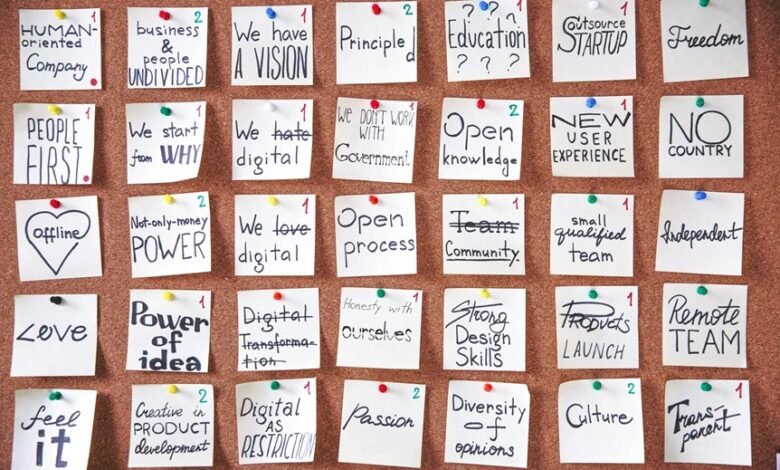 HUMAN-
oriented
Company
2
business
&
people
UNDIVIDED
1
We have
A VISION
2
Principled
1
Education
? ? ?
? ? ?
1
Outsource
STARTUP
Freedom
PEOPLE
FIRST.
1
We start
from WHY
1
We hate
digital
1
WE DON'T WORK
WITH
Government
2
Open
knowledge
1
NEW
USER
EXPERIENCE
NO
COUNTRY
offline
2
Not-only-money
POWER
1
We love
digital
Open
process
1
Team
Community
1
small
qualified
team
Independent
LOVE
1
Power
of
idea
1
Digital
Transforma-
tion
1
Honesty with
ourselves
Strong
Design
Skills
1
PRODUCTS
LAUNCH
2
Remote
TEAM
feel
it
2
Creative in
PRODUCT
development
1
Digital
AS
RESTRICTION
2
Passion
1
Diversity
of
opinions
2
Culture
1
Trans-
parent